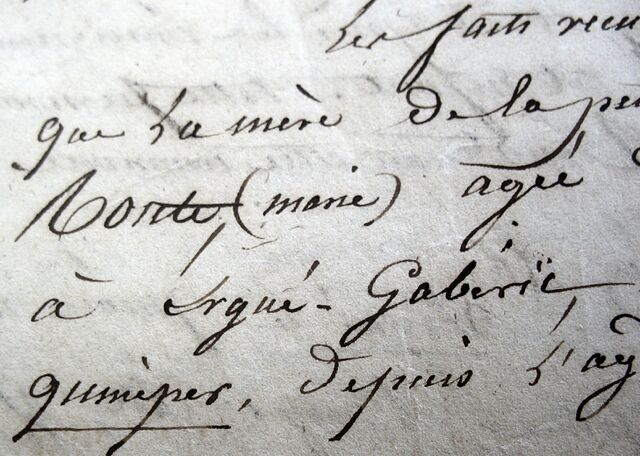 Les faits recu
que La mère de la pe
(marie) agée
à Ergué-Gabéric,
quimper, depuis L'ay